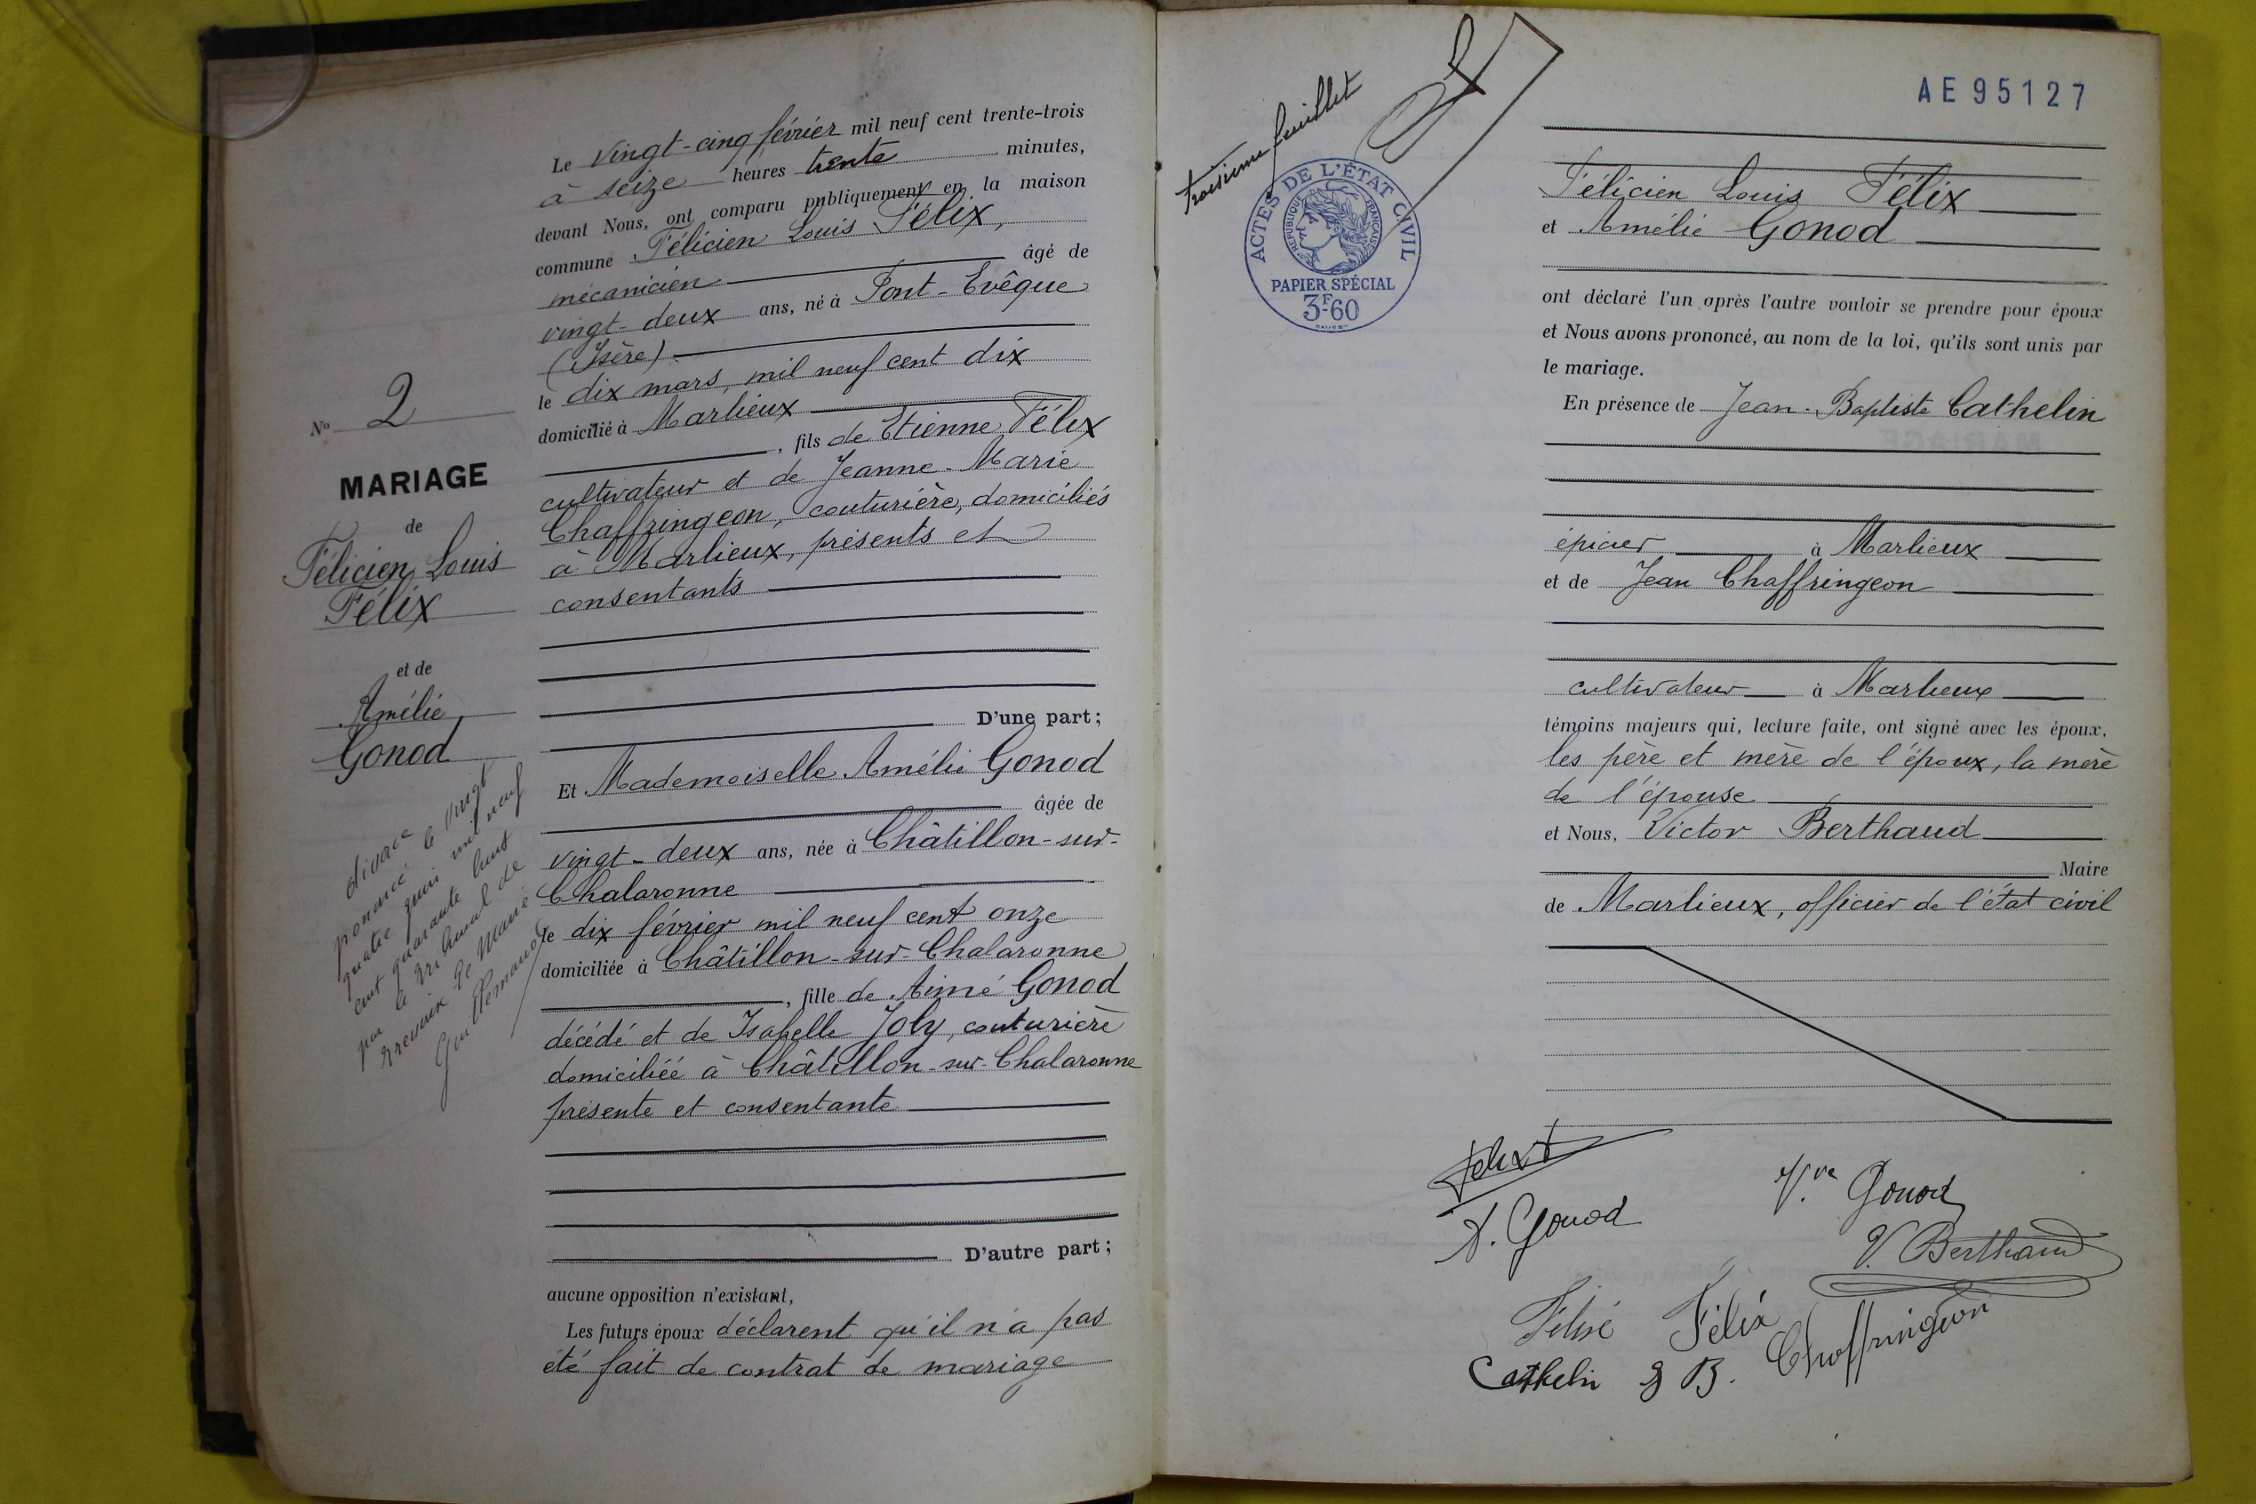 Le vingt-cinq février mil neuf cent trente-trois
à seize heures trente minutes,
devant Nous, ont comparu publiquement en la maison
commune Félicien Louis Félix,
mécanicien âgé de
vingt-deux ans, né à Pont-Evêque
(Isère)
le dix mars mil neuf cent dix
domicilié à Marlieux
, fils de Etienne Félix
cultivateur et de Jeanne-Marie
Chaffringeon, couturière, domiciliés
à Marlieux, présents et
consentants
D'une part;
Et Mademoiselle Amélie Gonod
âgée de
vingt-deux ans, née à Châtillon-sur-
Chalaronne
le dix février mil neuf cent onze
domiciliée à Châtillon-sur-Chalaronne
, fille de Aimé Gonod
décédé et de Isabelle Joly, couturière
domiciliée à Châtillon-sur-Chalaronne
présente et consentante
D'autre part;
aucune opposition n'existant,
Les futurs époux déclarent qu'il n'a pas
été fait de contrat de mariage
No 2
MARIAGE
de
Félicien Louis
Félix
et de
Amélie
Gonod
divorce
prononcé le vingt
quatre mil neuf
cent quarante huit
par le tribunal de
Trevoux
troisième feuillet
ACTES DE L'ÉTAT CIVIL
RÉPUBLIQUE FRANÇAISE
PAPIER SPÉCIAL
3F-60
AE95127
Félicien Louis Félix
et Amélie Gonod
ont déclaré l'un après l'autre vouloir se prendre pour époux
et Nous avons prononcé, au nom de la loi, qu'ils sont unis par
le mariage.
En présence de Jean-Baptiste Cathelin
épicier à Marlieux
et de Jean Chaffringeon
cultivateur à Marlieux
témoins majeurs qui, lecture faite, ont signé avec les époux,
les père et mère de l'époux, la mère
de l'épouse
et Nous, Victor Berthaud
Maire
de Marlieux, officier de l'état civil
A. Gonod
Vve Gonod
V. Berthaud
Félix
Chaffringeon
Cathelin J B.